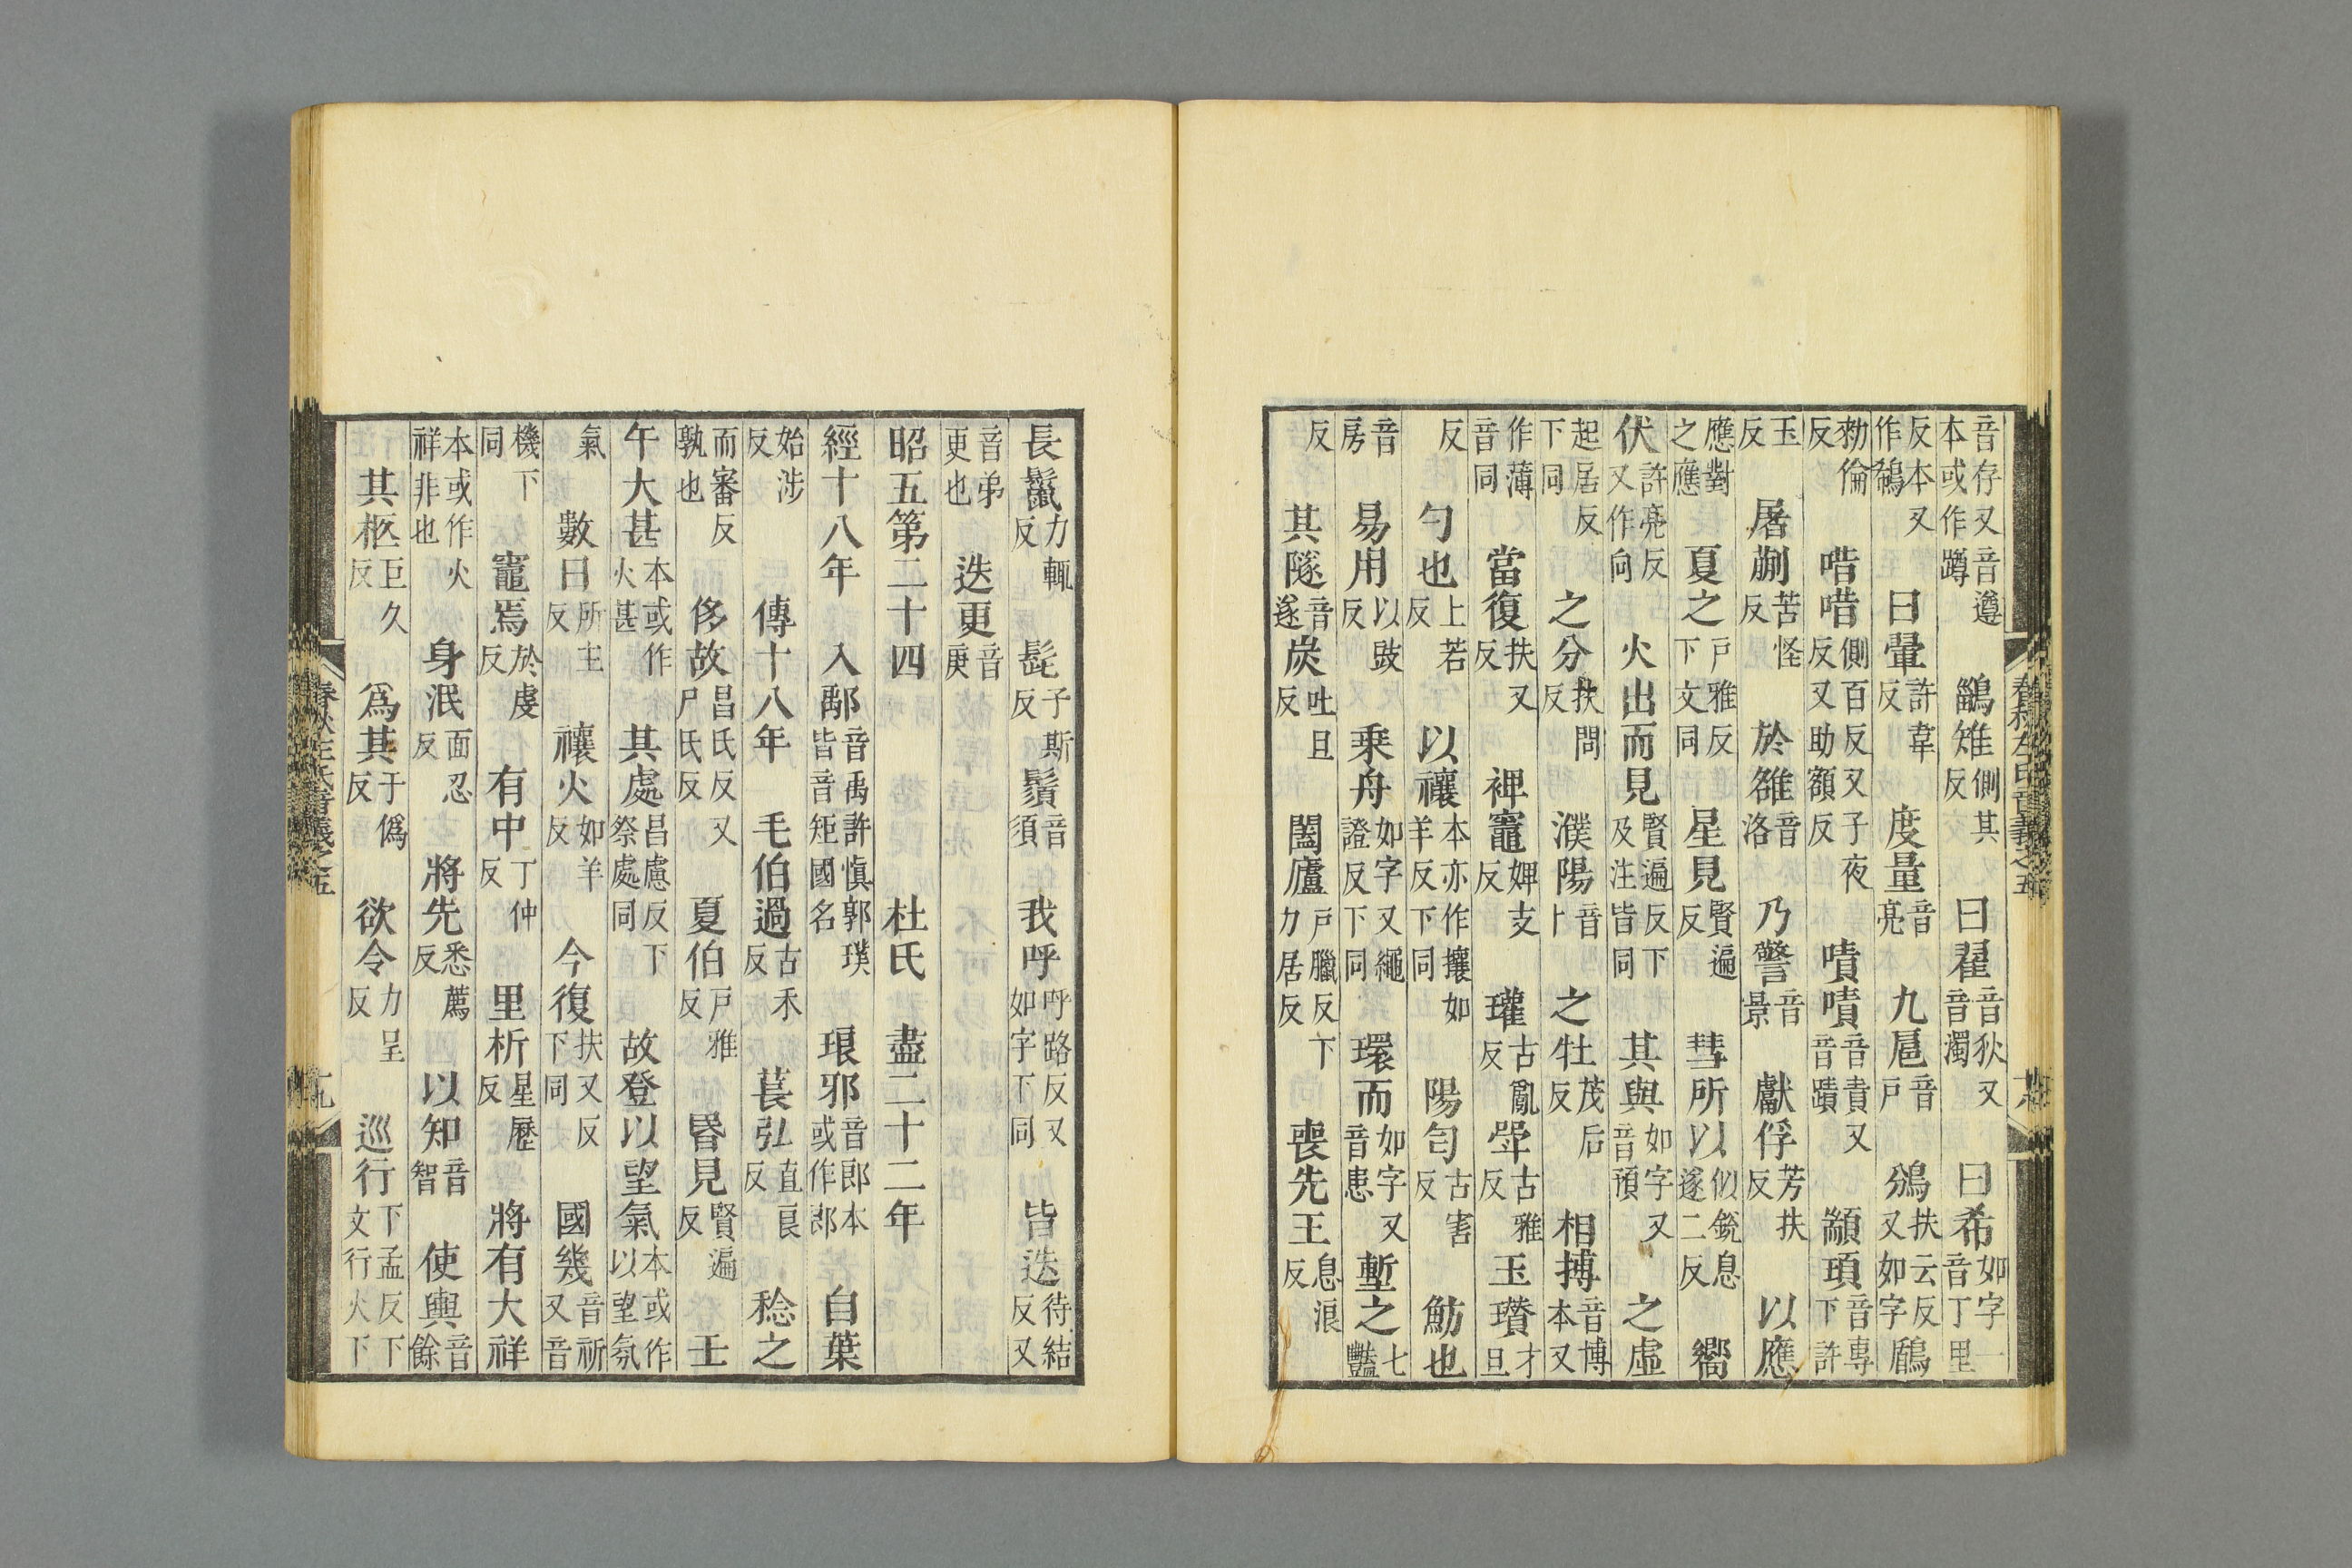 音存又音遵本或作蹲 鶅雉側其反 曰翟音狄又音濁 曰希如字一音丁里
反本又作鵗 曰翬許韋反 度量音亮 九扈音戶 鳻扶云反又如字 鶞
勑倫反 唶唶側百反又子夜反又助額反 嘖嘖音責又音蹟 顓頊音專下許
玉反 屠蒯苦怪反 於雒音洛 乃警音景 獻俘芳扶反 以應
應對之應 夏之戶雅反下文同 星見賢遍反 彗所以似銳息遂二反 嚮
伏許亮反又作向 火出而見賢遍反下及注皆同 其與如字又音預 之虛
起居反下同 之分扶問反 濮陽音卜 之牡茂后反 相搏音博本又
作薄音同 當復扶又反 裨竈婢支反 瓘古亂反 斝古雅反 玉瓚才旦
反 勺也上若反 以禳本亦作攘如羊反下同 陽匄古害反 魴也
音房 易用以豉反 乘舟如字又繩證反下同 環而如字又音患 塹之七豔
反 其隧音遂 炭吐旦反 闔廬戶臘反下力居反 喪先王息浪反
長鬛力輒反 髭子斯反 鬚音須 我呼呼路反又如字下同 皆迭待結反又
音弟更也 迭更音庚
昭五第二十四 杜氏 盡二十二年
經十八年 入鄅音禹許慎郭璞皆音矩國名 琅邪音郎本或作郎 自葉
始涉反 傳十八年 毛伯過古禾反 萇弘直良反 稔之
而審反孰也 侈故昌氏反又尸氏反 夏伯戶雅反 昏見賢遍反 壬
午大甚本或作火甚 其處昌慮反下祭處同 故登以望氣本或作以望氛
氣 數日所主反 禳火如羊反 今復扶又反下同 國幾音祈又音
機下同 竈焉於虔反 有中丁仲反 里析星歷反 將有大祥
本或作火祥非也 身泯面忍反 將先悉薦反 以知音智 使輿音餘
其柩巨久反 爲其于僞反 欲令力呈反 巡行下孟反下文行火下
春秋左氏音義之五 十九